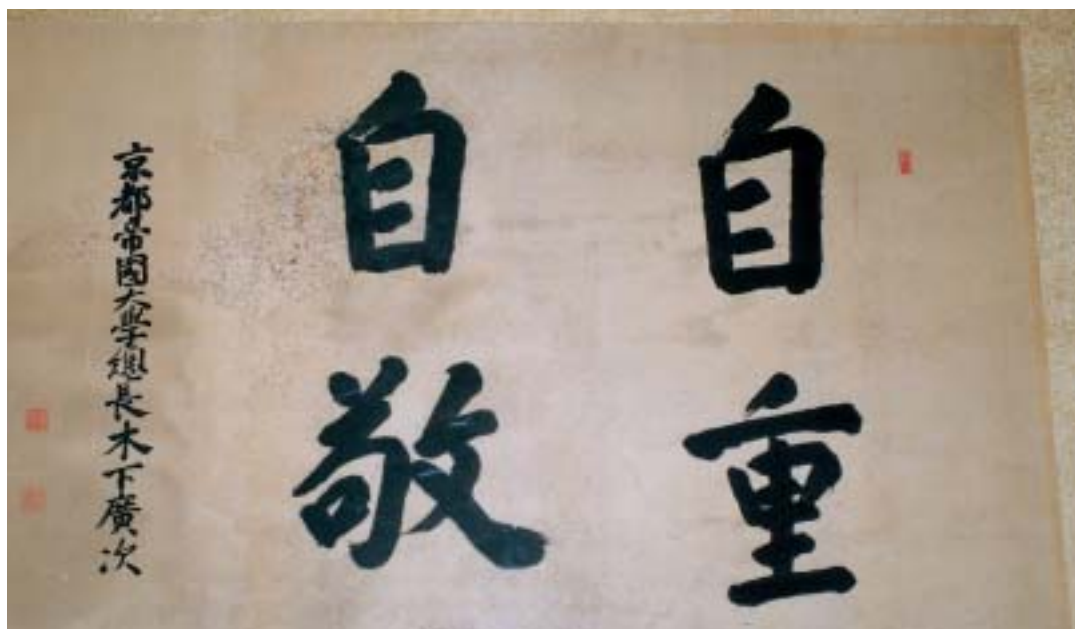 自重
自敬
京都帝國大學總長木下廣次